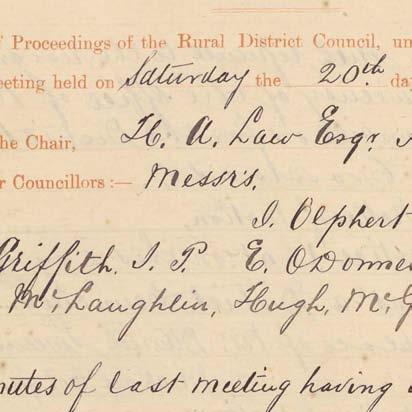 f Proceedings of the Rural District Council, un
eeting held on Saturday the 20th da
he Chair, H. A. Law Esqr
r Councillors :— Messrs.
J. Olphert
Griffith. J. P. E. ODonne
McLaughlin, Hugh, McG
nutes of last meeting having